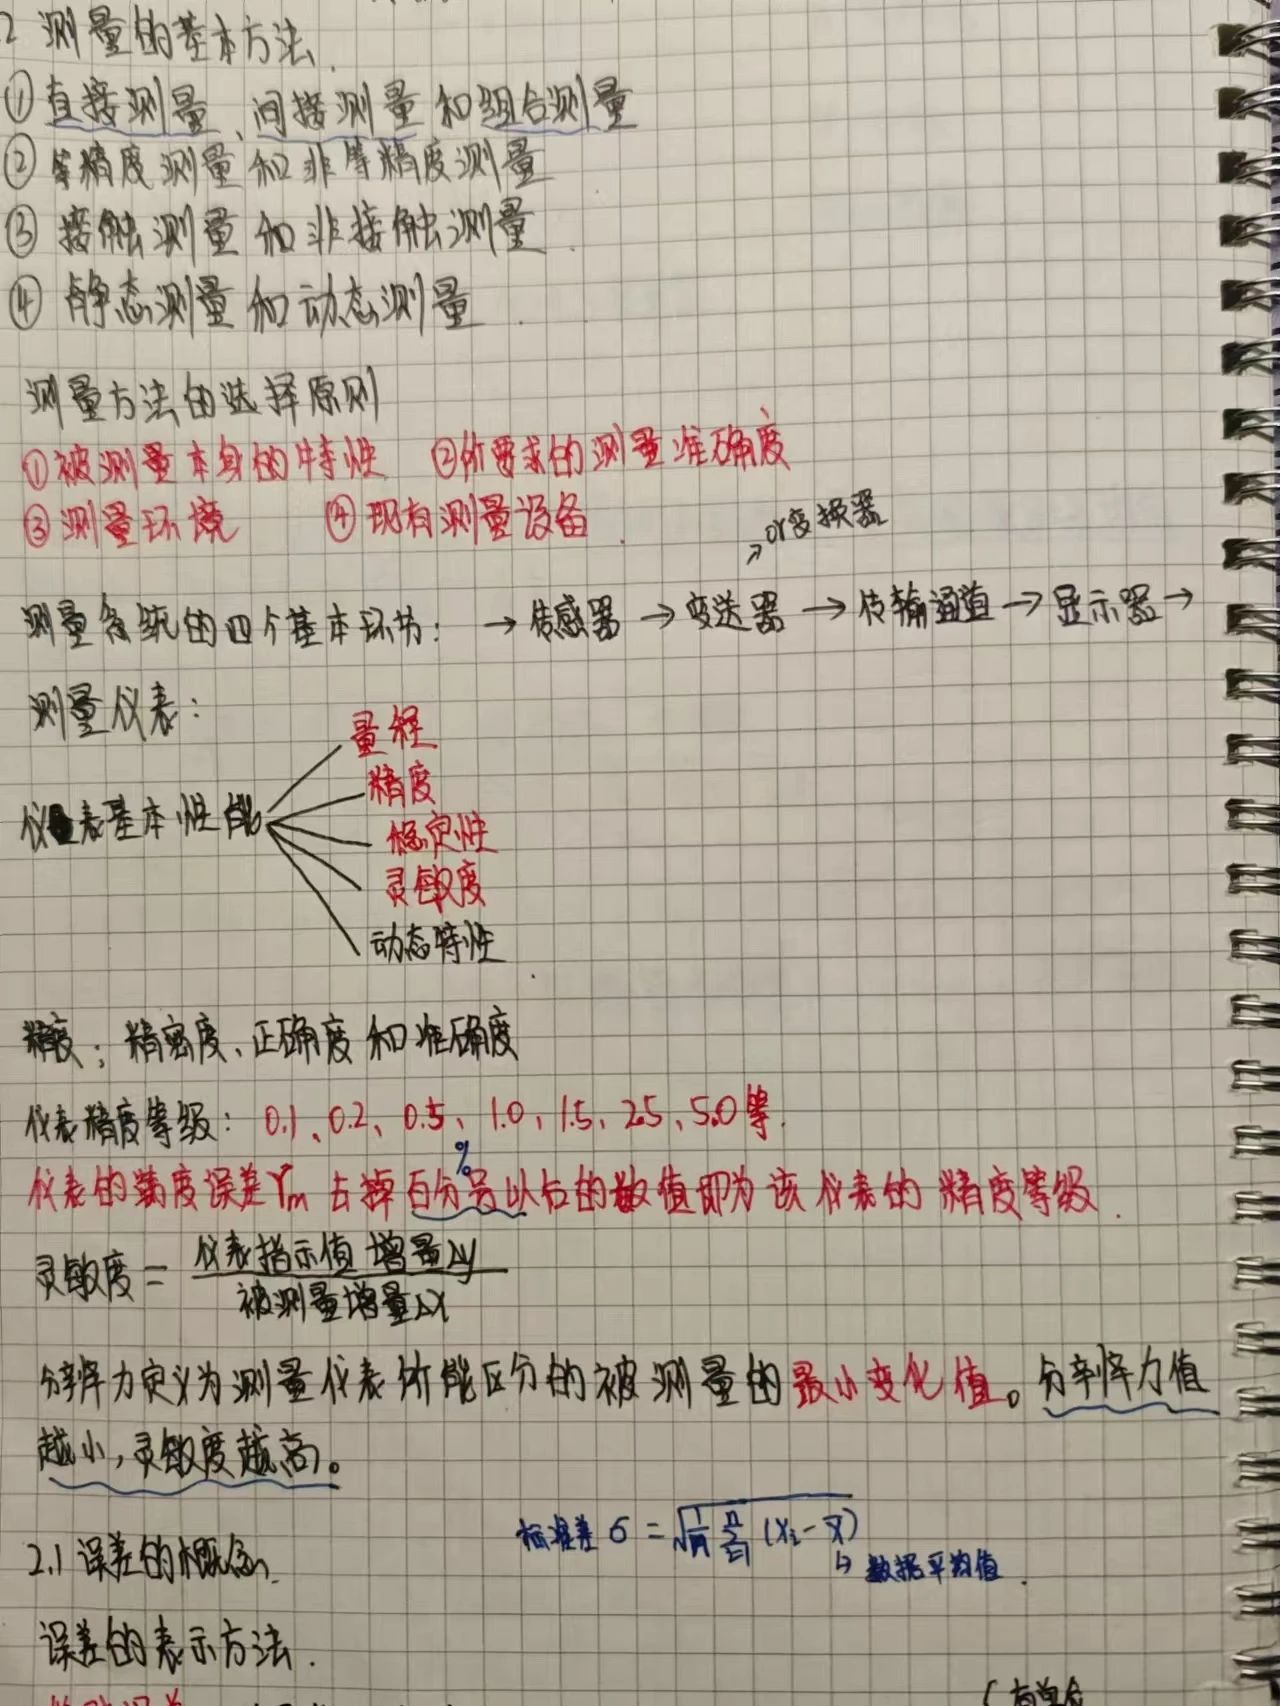 2 测量的基本方法.
①直接测量、间接测量和组合测量
②等精度测量和非等精度测量
③接触测量和非接触测量.
④静态测量和动态测量.
测量方法的选择原则
①被测量本身的特性 ②所要求的测量准确度
③测量环境 ④现有测量设备.
or变换器
测量系统的四个基本环节: →传感器→变送器→传输通道→显示器→
测量仪表:
量程
精度
仪表基本性能
稳定性
灵敏度
动态特性
精度: 精密度、正确度和准确度
仪表精度等级: 0.1、0.2、0.5、1.0、1.5、2.5、5.0等.
%
仪表的满度误差γm 去掉百分号以后的数值即为该仪表的精度等级.
灵敏度= 仪表指示值增量Δy
被测量增量Δx
分辨力定义为测量仪表所能区分的被测量的最小变化值。分辨力值
越小,灵敏度越高。
标准差 σ = √(1/n Σ (xi - x̄)
↳ 数据平均值.
2.1 误差的概念.
误差的表示方法.